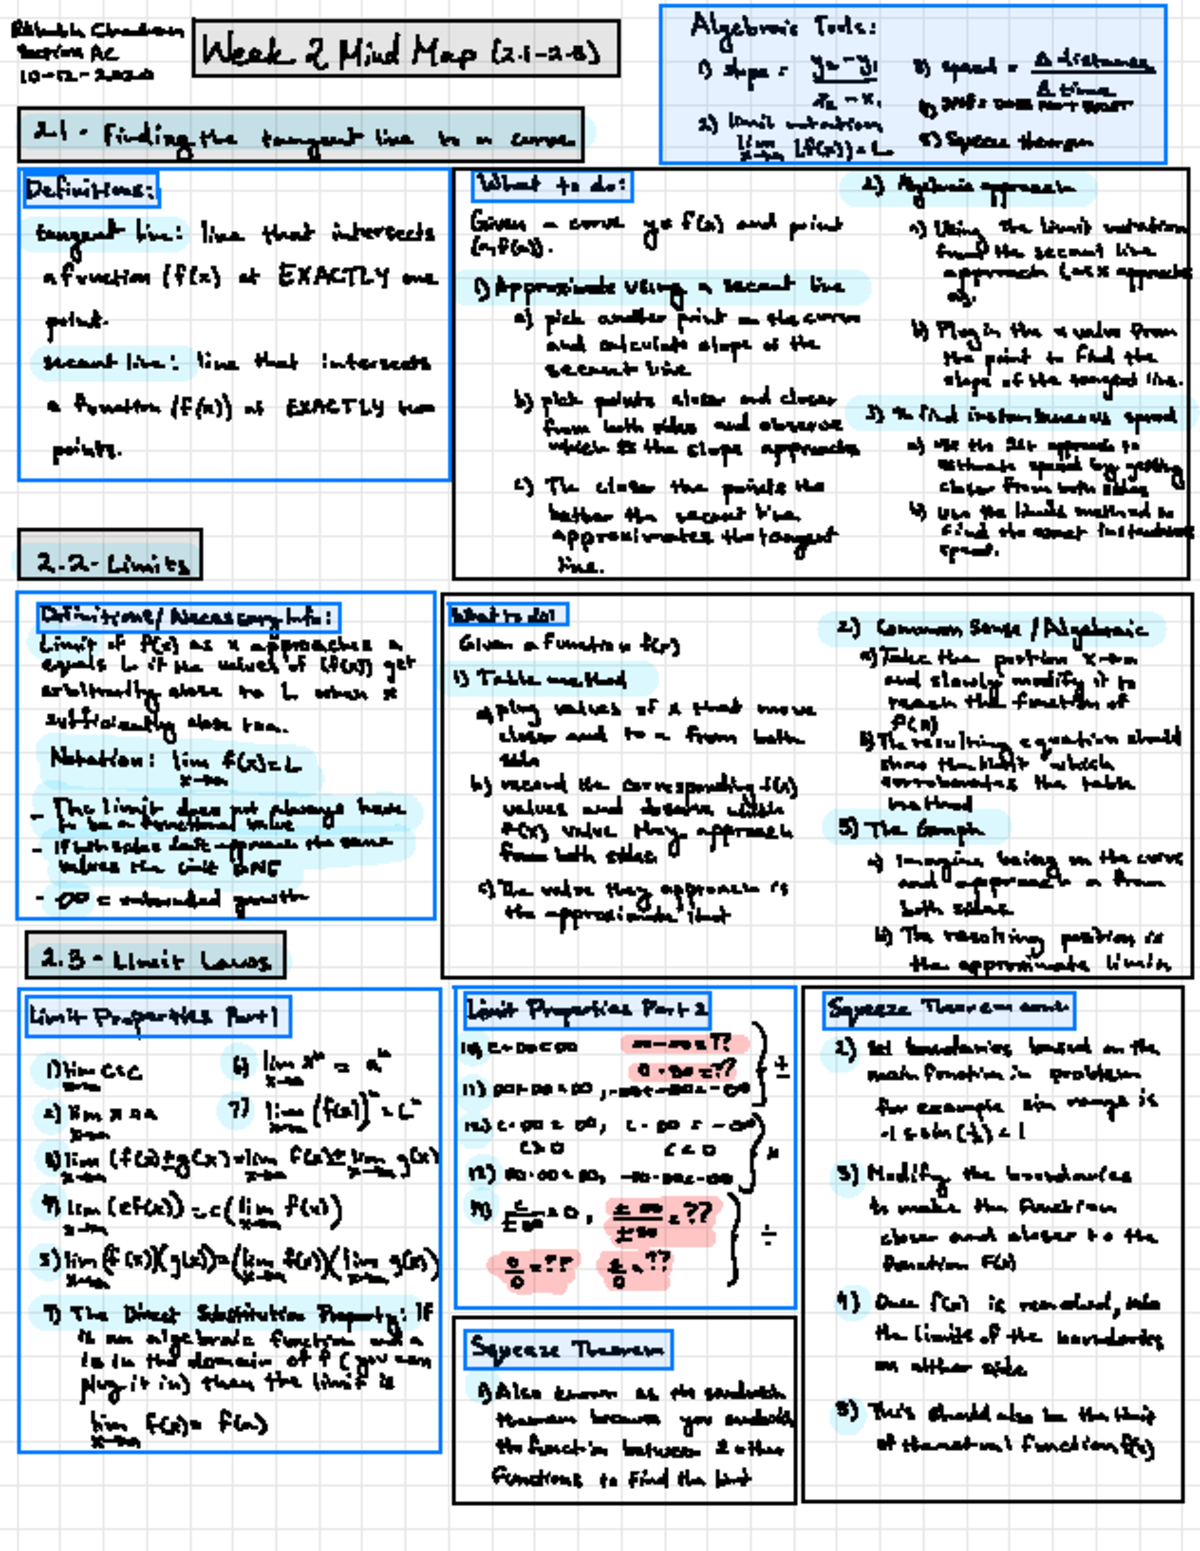 Section AC
Week 2 Mind Map (2.1-2.3)
Algebraic Tools:
1) slope = y₂-y₁ / x₂-x₁
2) limit notation
lim x→a (f(x)) = L
3) speed = Δ distance / Δ time
4) DNE: DOES NOT EXIST
5) Squeeze theorem
2.1 - Finding the tangent line to a curve
Definitions:
tangent line: line that intersects
a function (f(x) at EXACTLY one
point.
secant line: line that intersects
a function (f(x)) at EXACTLY two
points.
What to do:
Given a curve y=f(x) and point
(a,f(a)).
1) Approximate using a secant line
a) pick another point on the curve
and calculate slope of the
secant line
b) pick points closer and closer
from both sides and observe
which is the slope approaches
c) The closer the points the
better the secant line
approximates the tangent
line.
2) Algebraic approach
a) Using the limit notation
from the secant line
approach
b) Plug in the x value from
the point to find the
slope of the tangent line.
3) To find instantaneous speed
a) use the approach to
estimate speed by getting
closer from both sides
b) Use the limits method to
find the exact instantaneous
speed.
2.2 - Limits
Definitions/Necessary Info:
Limit of f(x) as x approaches a
equals L if the values of (f(x)) get
arbitrarily close to L when x
sufficiently close to a.
Notation: lim x→a f(x)=L
- The limit does not always have
to be a functional value
- If both sides don't approach the same
values the limit DNE
- ∞ = unbounded growth
What to do:
Given a function f(x)
1) Table method
a) plug values of x that move
closer and to a from both
side
b) record the corresponding f(x)
values and observe which
f(x) value they approach
from both sides
c) The value they approach is
the approximate limit
2) Common Sense / Algebraic
a) Take the portion x→a
and slowly modify it to
reach the function of
f(x)
b) The resulting equation should
show the limit which
corroborates the table
method
3) The Graph
a) Imagine being on the curve
and approach a from
both sides
b) The resulting position is
the approximate limit
2.3 - Limit Laws
Limit Properties Part 1
1) lim x→a c = c
2) lim x→a x = a
3) lim x→a (f(x)±g(x)) = lim x→a f(x) ± lim x→a g(x)
4) lim x→a (cf(x)) = c(lim x→a f(x))
5) lim x→a (f(x))(g(x)) = (lim x→a f(x))(lim x→a g(x))
6) lim x→a xⁿ = aⁿ
7) lim x→a (f(x))ⁿ = Lⁿ
The Direct Substitution Property: If
is an algebraic function and a
is in the domain of f (you can
plug it in) then the limit is
lim x→a f(x) = f(a)
Limit Properties Part 2
∞-∞=??
0·∞=??
±
11) ∞+∞=∞, -∞-∞=-∞
12) c·∞=∞, c·∞=-∞
c>0 c<0
×
13) ∞·∞=∞, -∞·∞=-∞
14) c/±∞=0, ±∞/±∞=??
0/0=??
÷
Squeeze Theorem
1) Also known as the sandwich
theorem because you sandwich
the function between 2 other
functions to find the limit
Squeeze Theorem cont.
2) Set boundaries based on the
main function in problem
for example sin range is
3) Modify the boundaries
to make the function
closer and closer to the
function f(x)
4) Once f(x) is reached, take
the limits of the boundaries
on either side
5) This should also be the limit
of the actual function f(x)